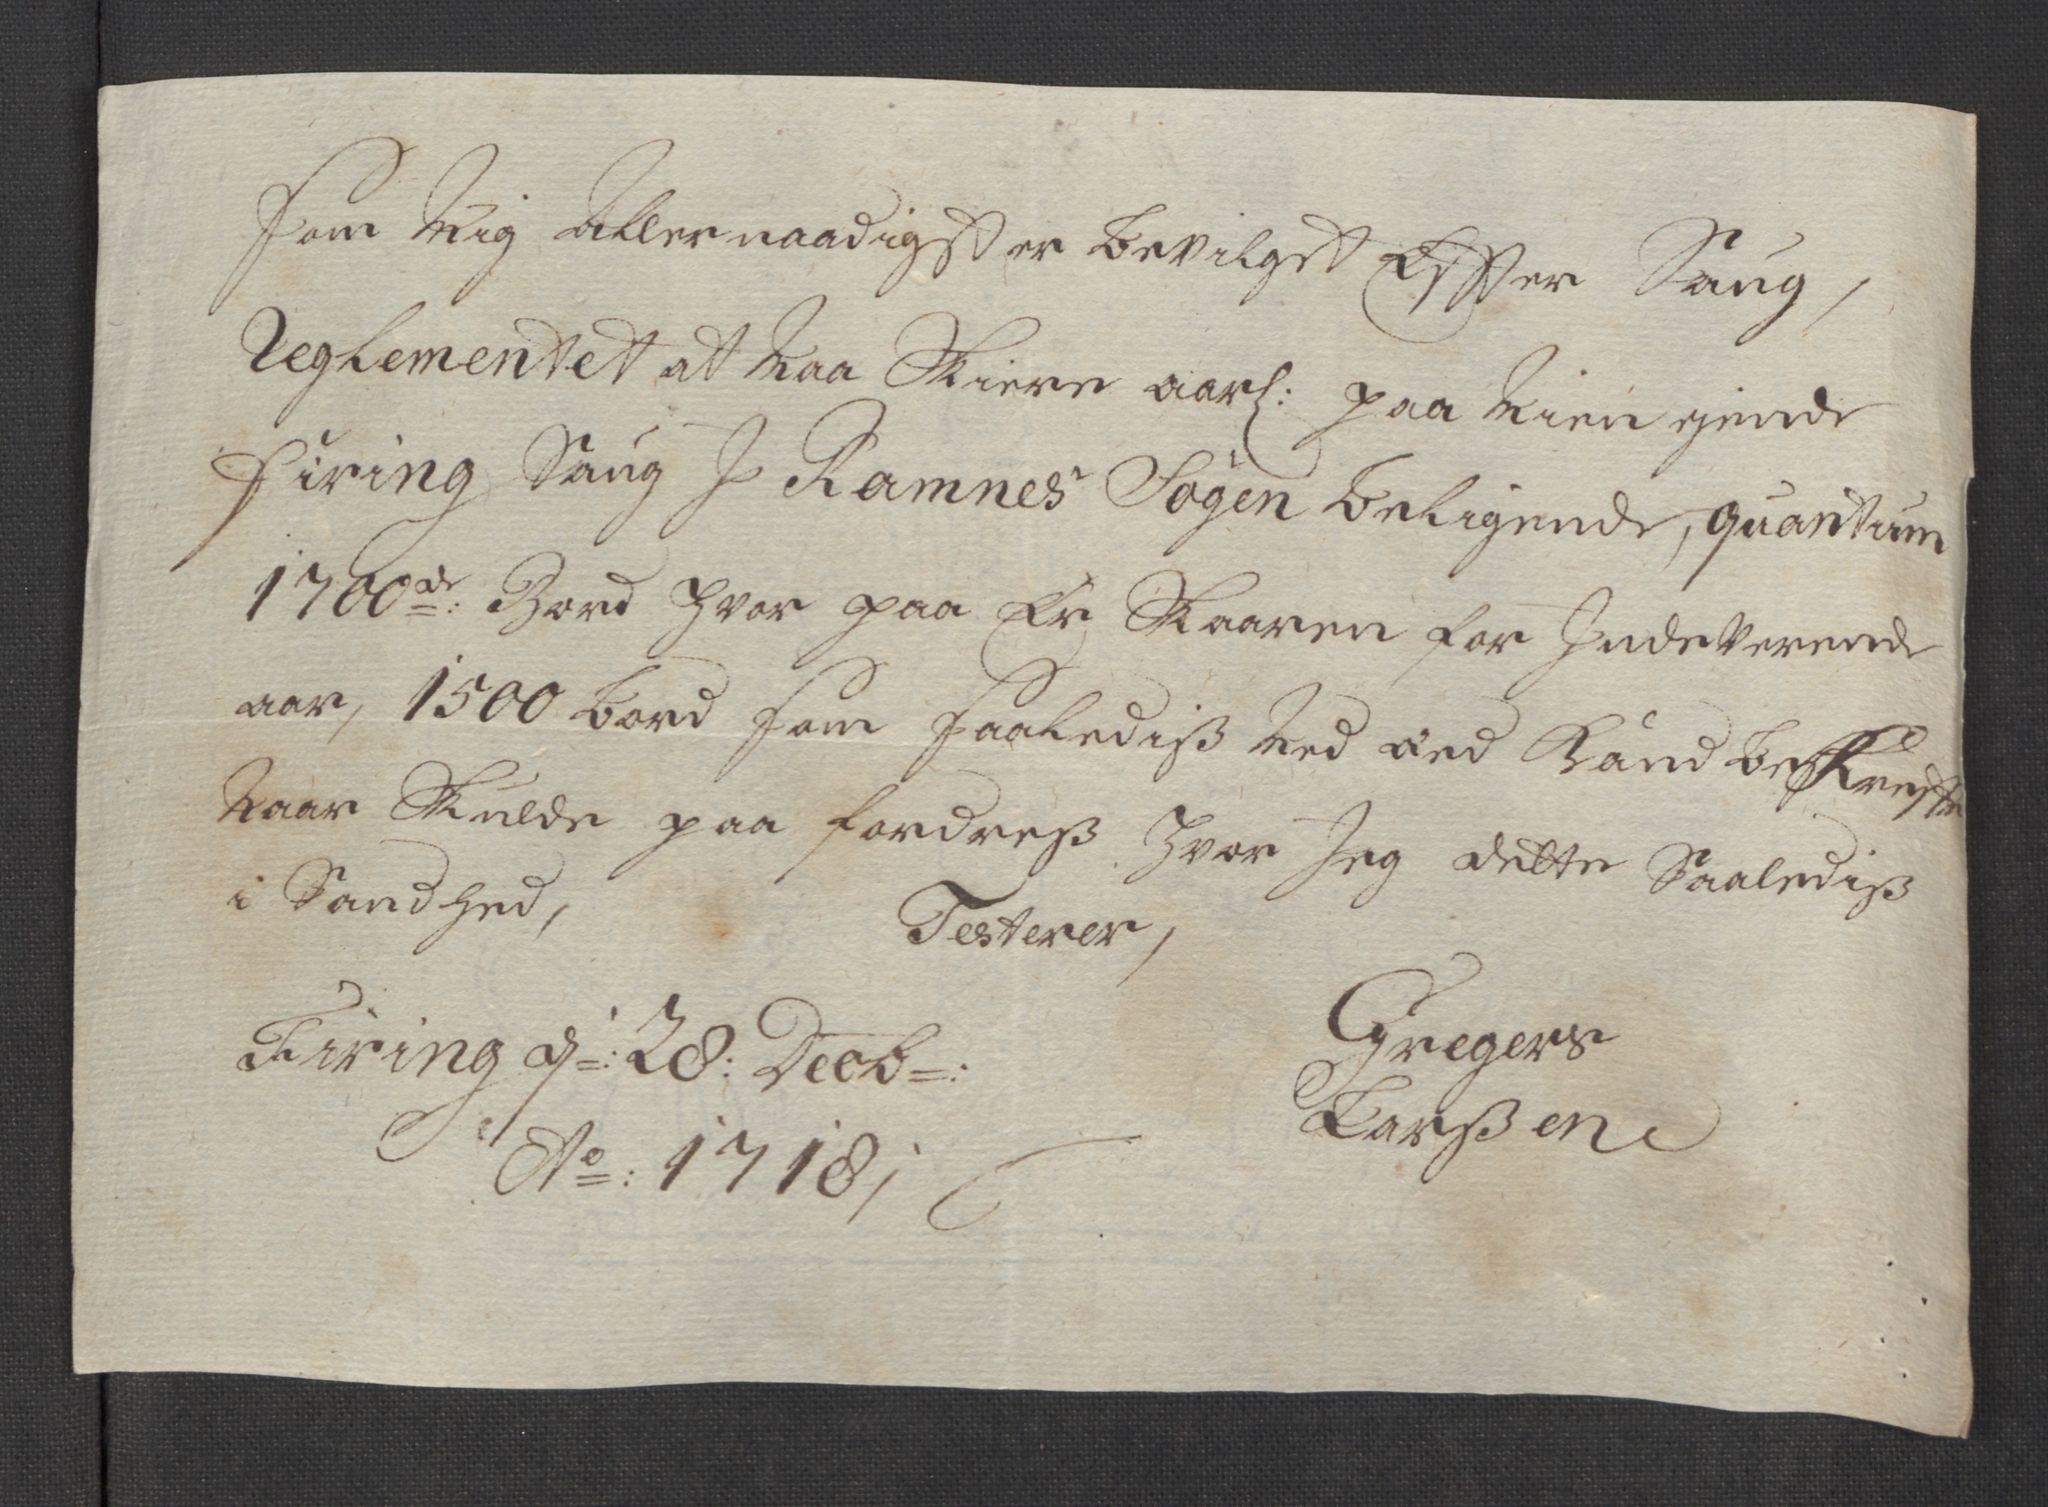 Som Mig Allernaadigst er bevilget Effter Saug,
Reglementet at Maa Skiere aarl: paa Min eiende
Firing Saug J Ramnes Sogen beligende, quantum
1700de: Bord hvor paa Er Skaaren for Indeverende
aar, 1500 bord som saalediß Med æd Kand bekreffte
Naar Skulde paa fordreß hvor Jeg dette Saalediß
i Sandhed, Testerer,
Firing d: 28: Decb:
Ao: 1718,
Gregers
Larßen